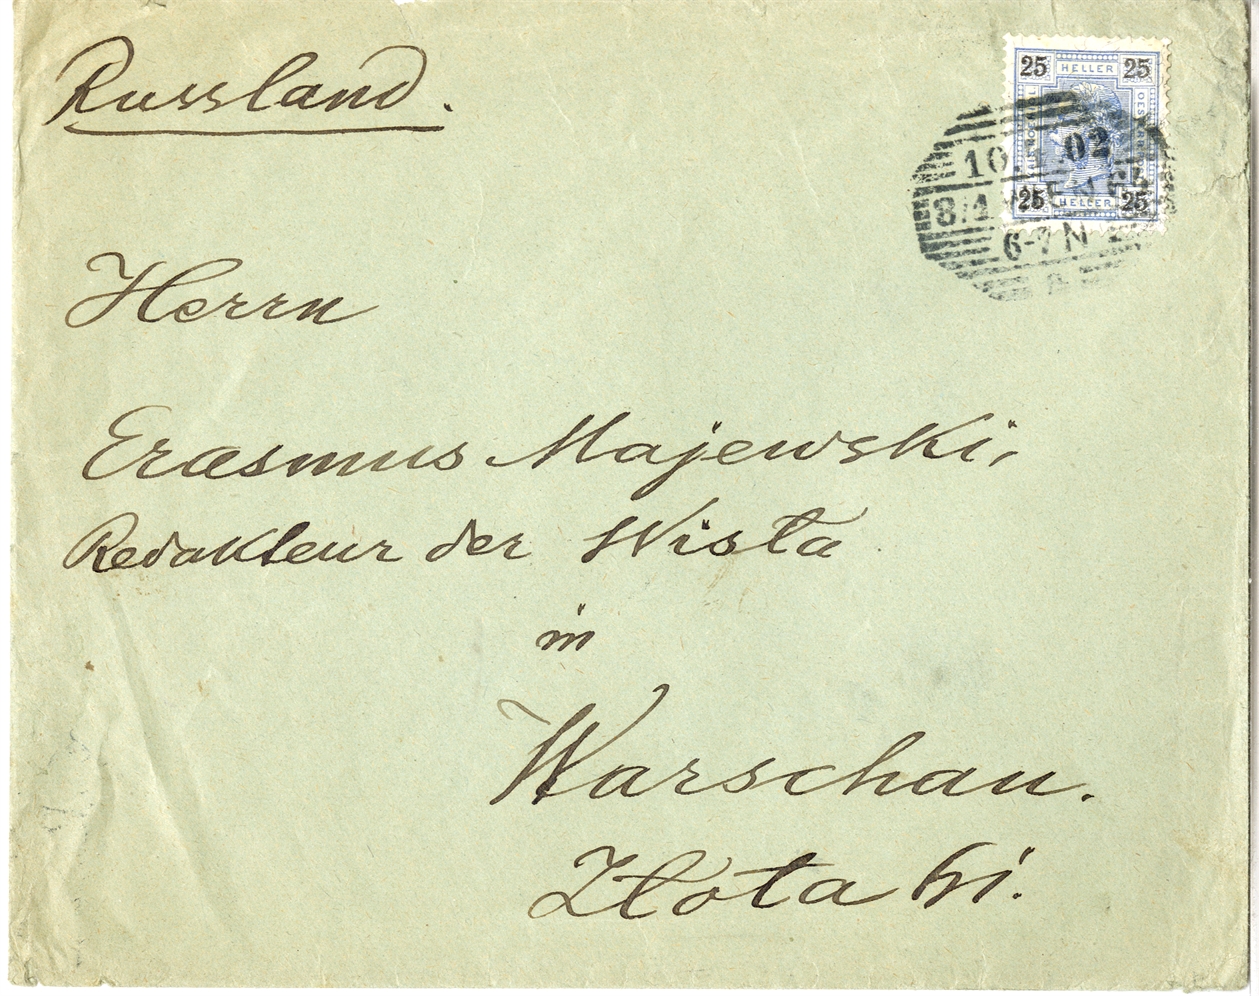 Russland.
25 HELLER 25
10. .02
8/1 WIEN
6-7 N
25 HELLER 25
Herrn
Erasmus Majewski,
Redakteur der Wista
in
Warschau.
Zlota 61.